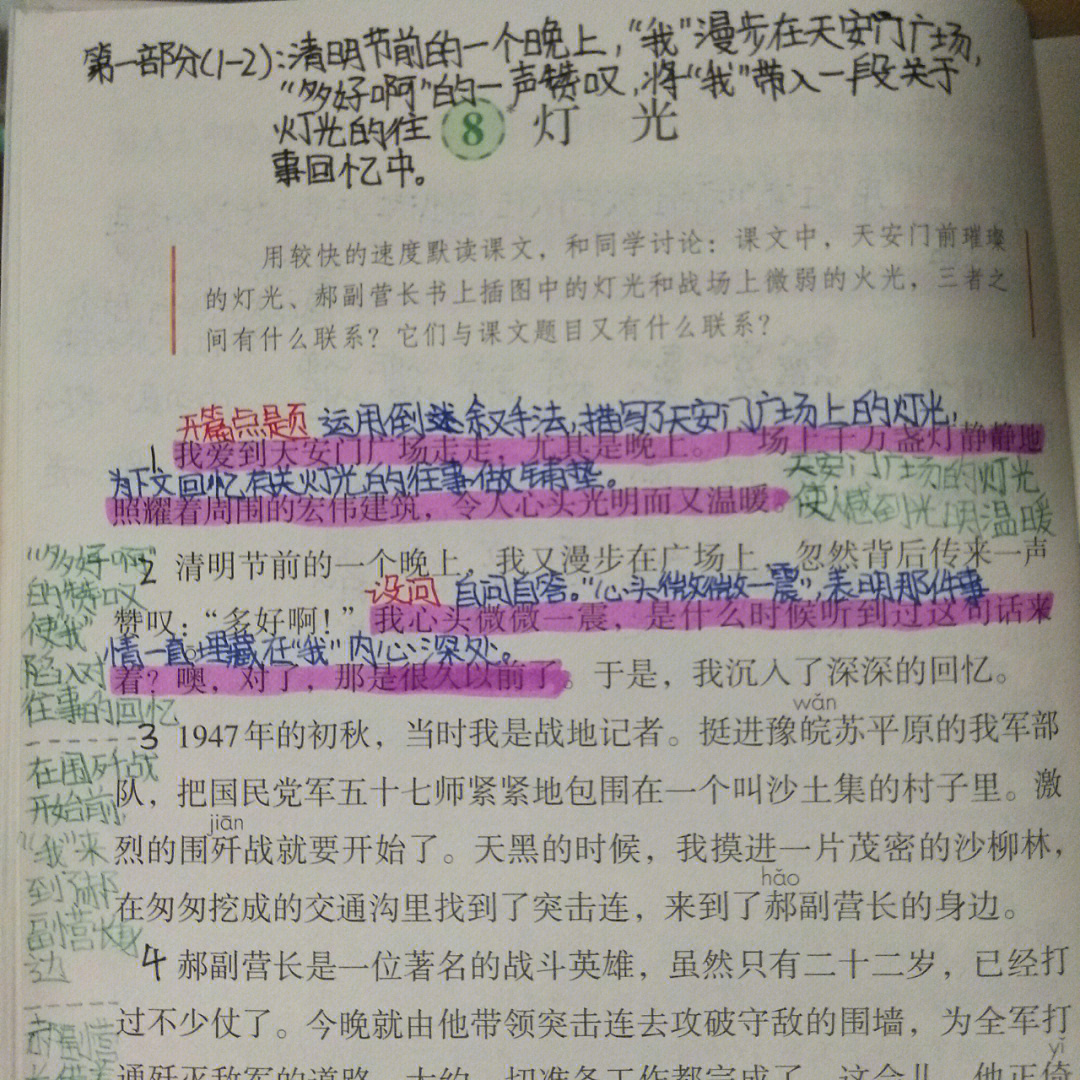 第一部分(1-2):清明节前的一个晚上,“我”漫步在天安门广场,
“多好啊”的一声赞叹,将“我”带入一段关于
灯光的往
事回忆中。
8 灯光
用较快的速度默读课文，和同学讨论：课文中，天安门前璀璨
的灯光、郝副营长书上插图中的灯光和战场上微弱的火光，三者之
间有什么联系？它们与课文题目又有什么联系？
开篇点题 运用倒叙手法,描写了天安门广场上的灯光,
1 我爱到天安门广场走走，尤其是晚上。广场上千万盏灯静静地
为下文回忆有关灯光的往事做铺垫。
天安门广场的灯光
照耀着周围的宏伟建筑，令人心头光明而又温暖。
使人感到光明温暖
“多好啊”
的赞叹
使“我”
陷入对
往事的回忆
2 清明节前的一个晚上，我又漫步在广场上，忽然背后传来一声
设问 自问自答。“心头微微一震”,表明那件事
赞叹：“多好啊！”我心头微微一震，是什么时候听到过这句话来
情一直埋藏在“我”内心深处。
着？噢，对了，那是很久以前了。于是，我沉入了深深的回忆。
wǎn
3 1947年的初秋，当时我是战地记者。挺进豫皖苏平原的我军部
在围歼战
开始前,
“我”来
到了郝
副营长身
边
队，把国民党军五十七师紧紧地包围在一个叫沙土集的村子里。激
jiān
烈的围歼战就要开始了。天黑的时候，我摸进一片茂密的沙柳林，
hǎo
在匆匆挖成的交通沟里找到了突击连，来到了郝副营长的身边。
4 郝副营长是一位著名的战斗英雄，虽然只有二十二岁，已经打
过不少仗了。今晚就由他带领突击连去攻破守敌的围墙，为全军打
郝副营
yǐ
通歼灭敌军的道路。大约一切准备工作都完成了，这会儿，他正倚